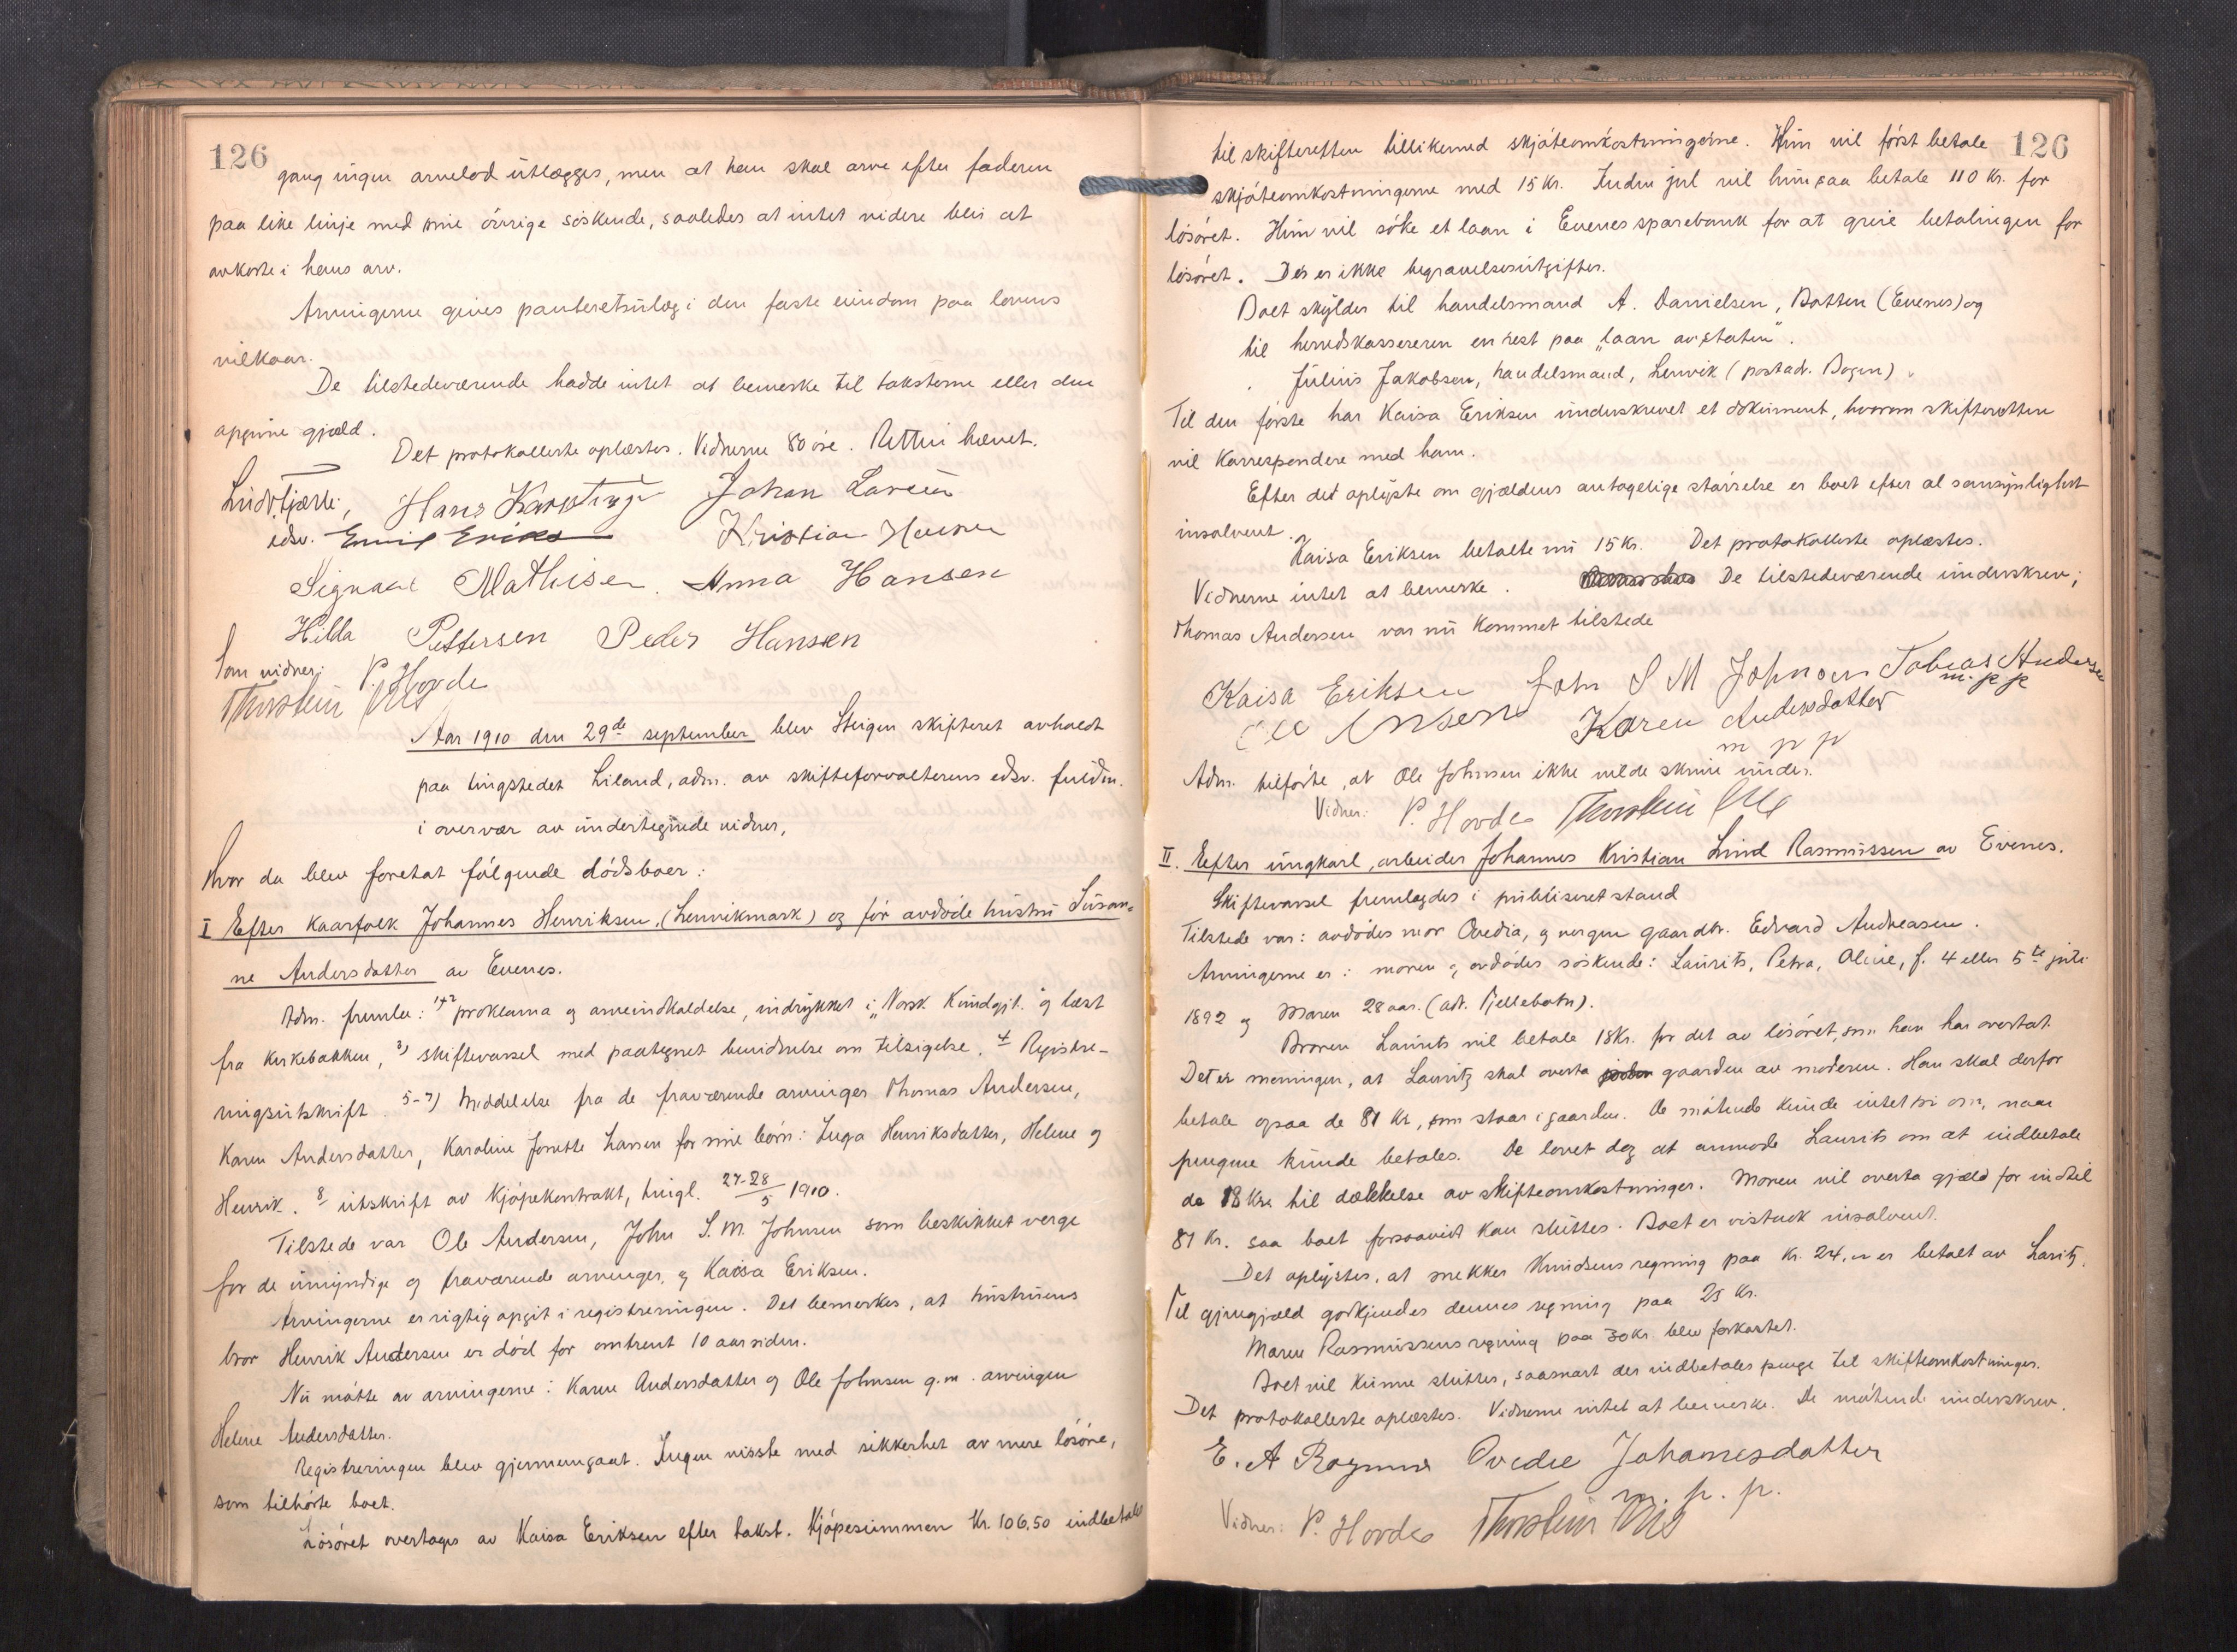 126
gang ingen arvelod utlægges, men at han skal arve efter faderen
paa like linje med sine övrige söskende, saaledes at intet videre blir at
avkorte i hans arv.
Arvingerne gives panteretsutlæg i den faste eiendom paa lovens
vilkaar.
De tilstedeværende hadde intet at bemerke til taksterne eller den
opgivne gjæld.
Det protokollerte oplæstes. Vidnerne 80 öre. Retten hævet.
Hans Johan Larsen
edsv. Emil Kristian Hansen
Signael Mathisen. Anna Hansen
Hilda Pettersen Peder Hansen
Som vidner: P. Hovde
Thorstein
Aar 1910 den 29de september blev Steigen skifteret avholdt
paa tingstedet Liland, adm. av skifteforvalterens edsv. fuldm.
i overvær av undertegnede vidner,
hvor da blev foretat følgende dödsboer:
I Efter kaarfolk Johannes Henriksen, (Lenvikmark) og för avdöde hustru Susan-
ne Andersdatter av Evenes.
Adm. fremla: 1+2 proklama og arveindkaldelse, indrykket i „Norsk Kundgjt." og læst
fra kirkebakken, 3) skiftevarsel med paategnet bevidnelse om tilsigelse. 4 Registre-
ringsutskrift. 5-7) Meddelelse fra de fraværende arvinger Thomas Andersen,
Karen Andersdatter, Karoline Larsen for sine börn: Inga Henriksdatter, Helene og
Henrik. 8 utskrift av kjøpekontrakt, tingl. 27-28/5 1910.
Tilstede var Ole Andersen, John S. M. Johnsen som beskikket verge
for de umyndige og fraværende arvinger, og Kaisa Eriksen.
Arvingerne er rigtig opgit i registreringen. Det bemerkes, at hustruens
bror Henrik Andersen er död for omtrent 10 aar siden.
Nu mötte av arvingerne: Karen Andersdatter og Ole Johnsen g.m. arvingen
Helene Andersdatter.
Registreringen blev gjennemgaat. Ingen visste med sikkerhet av mere lösöre,
som tilhörte boet.
Lösöret overtages av Kaisa Eriksen efter takst. Kjöpesummen Kr. 106,50 indbetales
126
til skifteretten tillikemed skjöteomkostningerne. Hun vil först betale
skjöteomkostningerne med 15 Kr. Inden jul vil hun saa betale 110 Kr. for
lösöret. Hun vil söke et laan i Evenes sparebank for at greie betalingen for
lösöret. Der er ikke begravelsesutgifter.
Boet skylder til handelsmand A. Danielsen, Botten (Evenes) og
til herredskassereren en rest paa „laan av staten".
Julius Jakobsen, handelsmand, Lenvik (postadr. Bogen).
Til den förste har Kaisa Eriksen underskrevet et dokument, hvorom skifteretten
vil korrespondere med ham.
Efter det oplyste om gjældens antagelige störrelse er boet efter al sansynlighet
insolvent.
Kaisa Eriksen betalte nu 15 Kr. Det protokollerte oplæstes.
Vidnerne intet at bemerke. De tilstedeværende underskrev;
Thomas Andersen var nu kommet tilstede
Kaisa Eriksen John S M Johnsen Tobias Andersen
m. p p
Karen Andersdatter
m p p
Adm. tilförte, at Ole Johnsen ikke vilde skrive under.
Vidner: P. Hovde Thorstein
II. Efter ungkarl, arbeider Johannes Kristian Lind Rasmussen av Evenes.
Skiftevarsel fremlagdes i publiseret stand
Tilstede var: avdödes mor Ovedia, og vergen gaardbr. Edvard Andreasen.
Arvingerne er: moren og avdödes söskende: Laurits, Petra, Oline, f. 4 eller 5te juli
1892 og Maren 28 aar. (adr. Fjellebotn).
Broren Laurits vil betale 18 Kr. for det av lösöret, som han har overtat.
Det er meningen, at Lauritz skal overta gaarden av moderen. Han skal derfor
betale ogsaa de 81 Kr, som staar i gaarden. De mötende kunde intet si om, naar
pengene kunde betales. De lovet dog at anmode Laurits om at indbetale
de 18 Kr. til dækkelse av skifteomkostninger. Moren vil overta gjæld for indtil
81 Kr. saa boet forsaavidt kan sluttes. Boet er vistnok insolvent.
Det oplystes, at snekker Knudsens regning paa Kr. 24, er betalt av Laritz.
Til gjengjæld godkjendes dennes regning paa 25 Kr.
Maren Rasmussens regning paa 30 kr. blev forkastet.
Boet vil kunne sluttes, saasnart der indbetales penge til skifteomkostninger.
Det protokollerte oplæstes. Vidnerne intet at bemerke. De mötende underskrev.
E. A Ovedie Johanesdatter
m. p. p.
Vidner: P. Hovde Thorstein